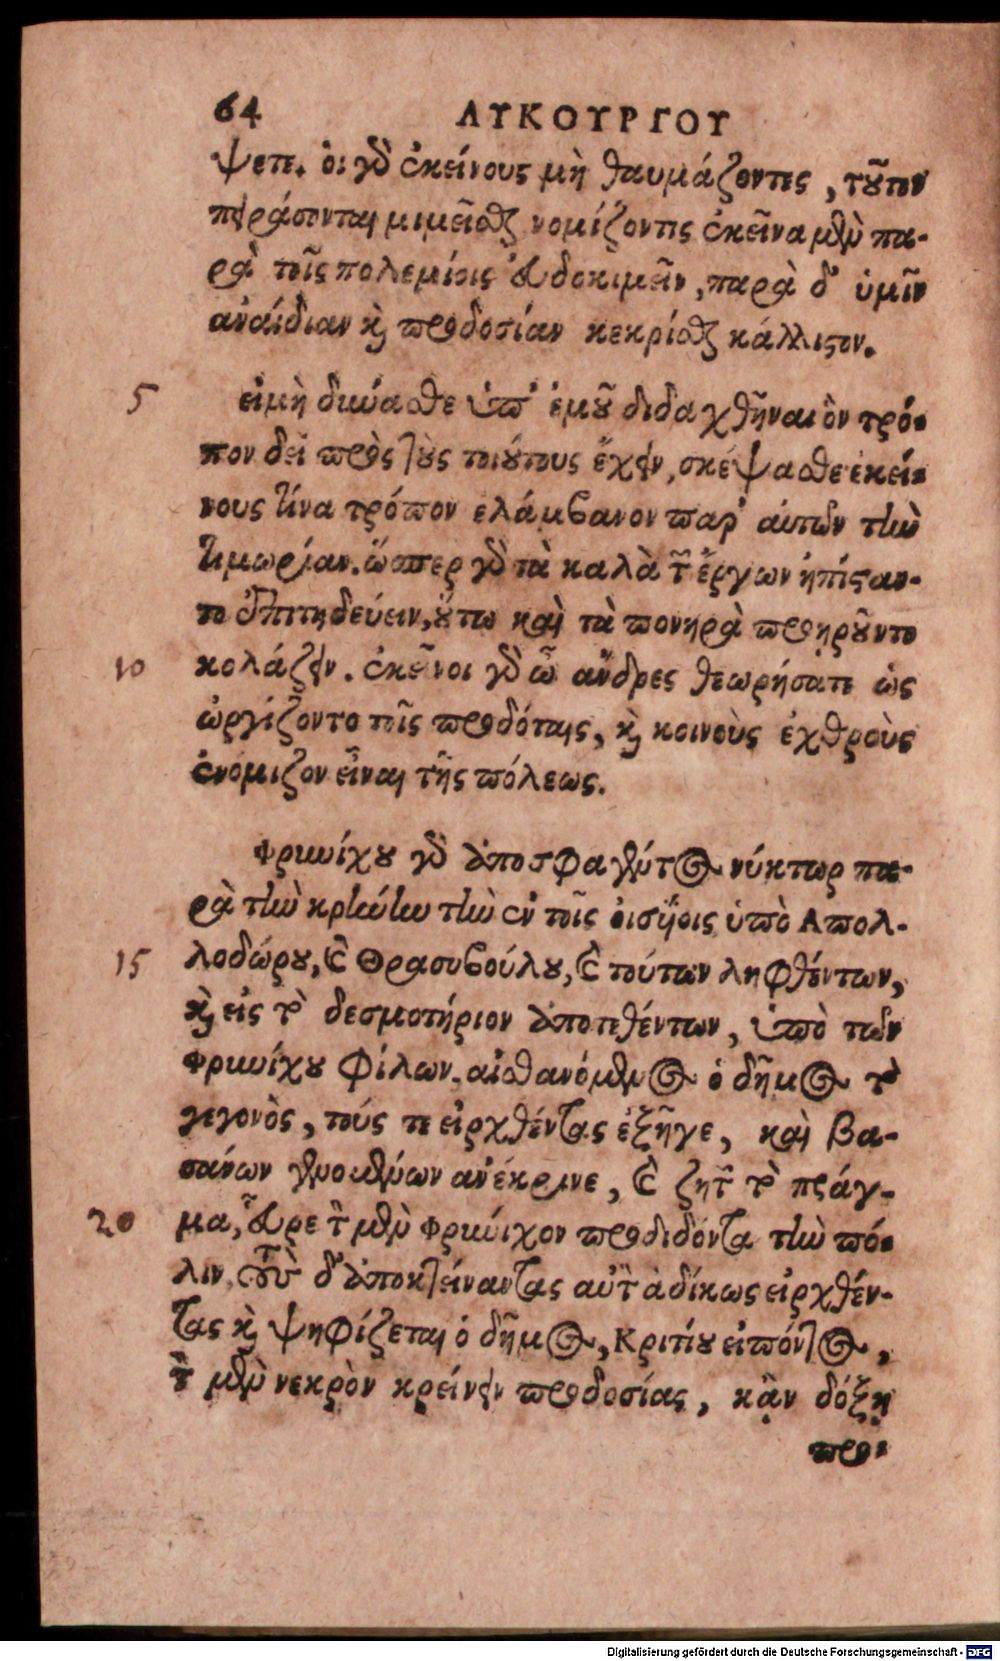 64 ΛΥΚΟΥΡΓΟΥ
ψετε. οἱ γὸ ἐκείνους μὴ θαυμάζοντες, τοῦτον
πειράσονται μιμεῖσθαι νομίζοντες ἐκεῖνα μὲν πα-
ρὰ τοῖς πολεμίοις εὐδοκιμεῖν, παρὰ δ' ὑμῖν
ἀναίδιαν καὶ προδοσίαν κεκρίσθαι κάλλιστον.
5 εἰ μὴ δύνασθε ὑπ' ἐμοῦ διδαχθῆναι ὃν τρό-
πον δεῖ πρὸς τοὺς τοιούτους ἔχειν, σκέψασθε ἐκεί-
νους τίνα τρόπον ἐλάμβανον παρ' αὐτῶν τὴν
τιμωρίαν. ὥσπερ γὸ τὰ καλὰ τῶν ἔργων ἠπίσταν-
το ἐπιτηδεύειν, οὕτω καὶ τὰ πονηρὰ προηροῦντο
10 κολάζειν. ἐκεῖνοι γὸ ὦ ἄνδρες θεωρήσατε ὡς
ὠργίζοντο τοῖς προδόταις, καὶ κοινοὺς ἐχθροὺς
ἐνόμιζον εἶναι τῆς πόλεως.
Φρυνίχου γὸ ἀποσφαγέντος νύκτωρ πα-
ρὰ τὴν κρήνην τὴν ἐν τοῖς οἰσύοις ὑπὸ Απολ-
15 λοδώρου, καὶ Θρασυβούλου, καὶ τούτων ληφθέντων,
καὶ εἰς τὸ δεσμοτήριον ἀποτεθέντων, ὑπὸ τῶν
Φρυνίχου φίλων. αἰσθανόμενος ὁ δῆμος τὸ
γεγονὸς, τούς τε εἱρχθέντας ἐξῆγε, καὶ βα-
σάνων γενομένων ἀνέκρινε, καὶ ζητῶν τὸ πράγ-
20 μα, εὗρε τὸν μὲν Φρύνιχον προδιδόντα τὴν πό-
λιν, τοὺς δ' ἀποκτείναντας αὐτὸν ἀδίκως εἱρχθέν-
τας καὶ ψηφίζεται ὁ δῆμος, Κριτίου εἰπόντος,
τὸν μὲν νεκρὸν κρείνειν προδοσίας, κᾂν δόξῃ
προ-
Digitalisierung gefördert durch die Deutsche Forschungsgemeinschaft - DFG